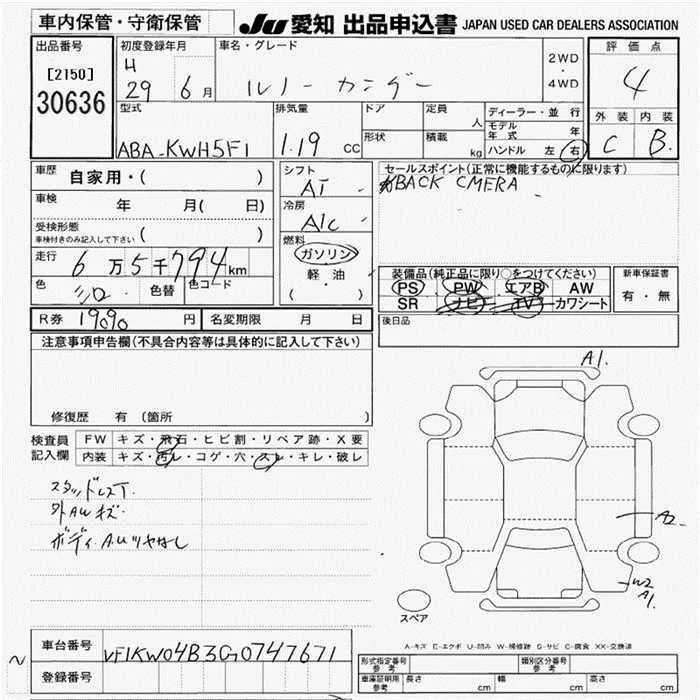 車内保管・守衛保管
JU 愛知 出品申込書 JAPAN USED CAR DEALERS ASSOCIATION
出品番号
[2150]
30636
初度登録年月
H
29 6月
車名・グレード
ルノー カングー
2WD
・
4WD
評価点
4
外装 内装
C B
型式
ABA-KWH5F1
排気量
1.19 CC
ドア
形状
定員
人
積載
kg
ディーラー・並行
モデル
年式 年
ハンドル 左 右
車歴
自家用・( )
車検
年 月( 日)
受検形態
車検付きのみ記入して下さい ( )
走行
6万5千794km
色
シロ
色替
色コード
R券 19090 円
名変期限 月 日
シフト
AT
冷房
A/C
燃料
ガソリン
軽・油
( ・ )
セールスポイント(正常に機能するものに限ります)
BACK CMERA
装備品(純正品に限り○をつけてください)
PS PW エアB AW
SR ナビ TV カワシート
新車保証書
有・無
後日品
注意事項申告欄(不具合内容等は具体的に記入して下さい)
修復歴 有 (箇所
検査員
記入欄
FW キズ・飛石・ヒビ割・リペア跡・X要
内装 キズ・汚レ・コゲ・穴・スレ・キレ・破レ
スタッドレスT.
外AWキズ
ボディ.AWツヤなし
A1.
A2
W2
A1.
スペア
A-キズ E-エクボ U-凹み W-補修跡 S-サビ C-腐食 XX-交換済
車台番号
VF1KW04B3G0747671
登録番号
型式指定番号
参考
類別区分番号
参考
車庫証明用
参考
長さ cm
幅 cm
高さ cm